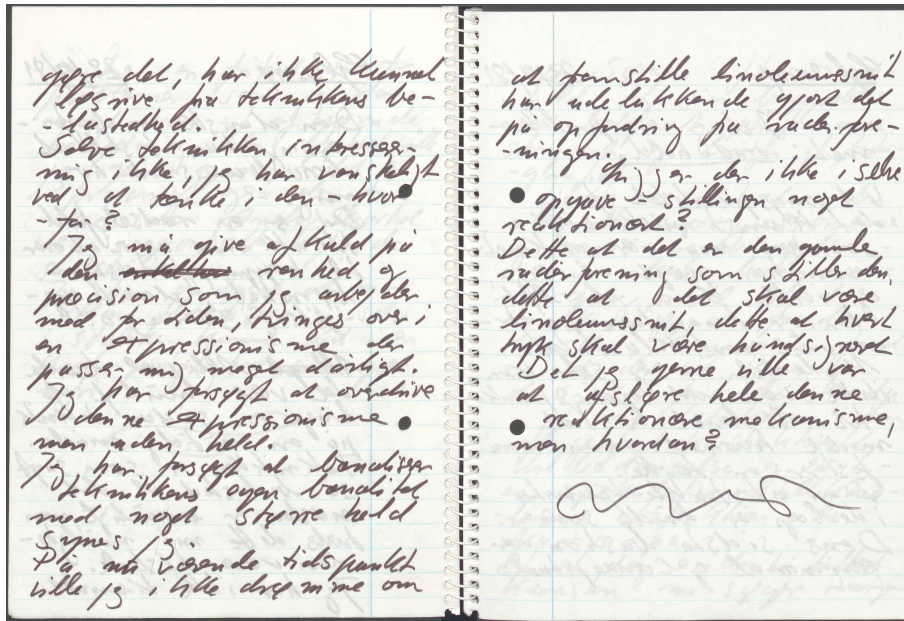 gøre det, har ikke kunnet
løsrive fra teknikkens be-
-lastethed.
Selve teknikken interesserer
mig ikke, jeg har vanskeligt
ved at tænke i den - hvor-
-for?
Jeg må give afkald på
den renhed og
præcision som jeg arbejder
med for tiden, tvinges over i
en expressionisme der
passer mig meget dårligt.
Jeg har forsøgt at overdrive
denne expressionisme
men uden held.
Jeg har forsøgt at banalisere
teknikkens egen banalitet
med noget større held
synes jeg.
På nuværende tidspunkt
ville jeg ikke drømme om
at fremstille linoleumssnit
har udelukkende gjort det
på opfordring fra raderfore-
-ningen.
Ligger der ikke i selve
opgave - stillingen noget
reaktionært?
Dette at det er den gamle
raderforening som stiller den,
dette at det skal være
linoleumssnit, dette at hvert
tryk skal være håndsigneret
Det jeg gerne ville var
at afsløre hele denne
reaktionære mekanisme,
men hvordan?